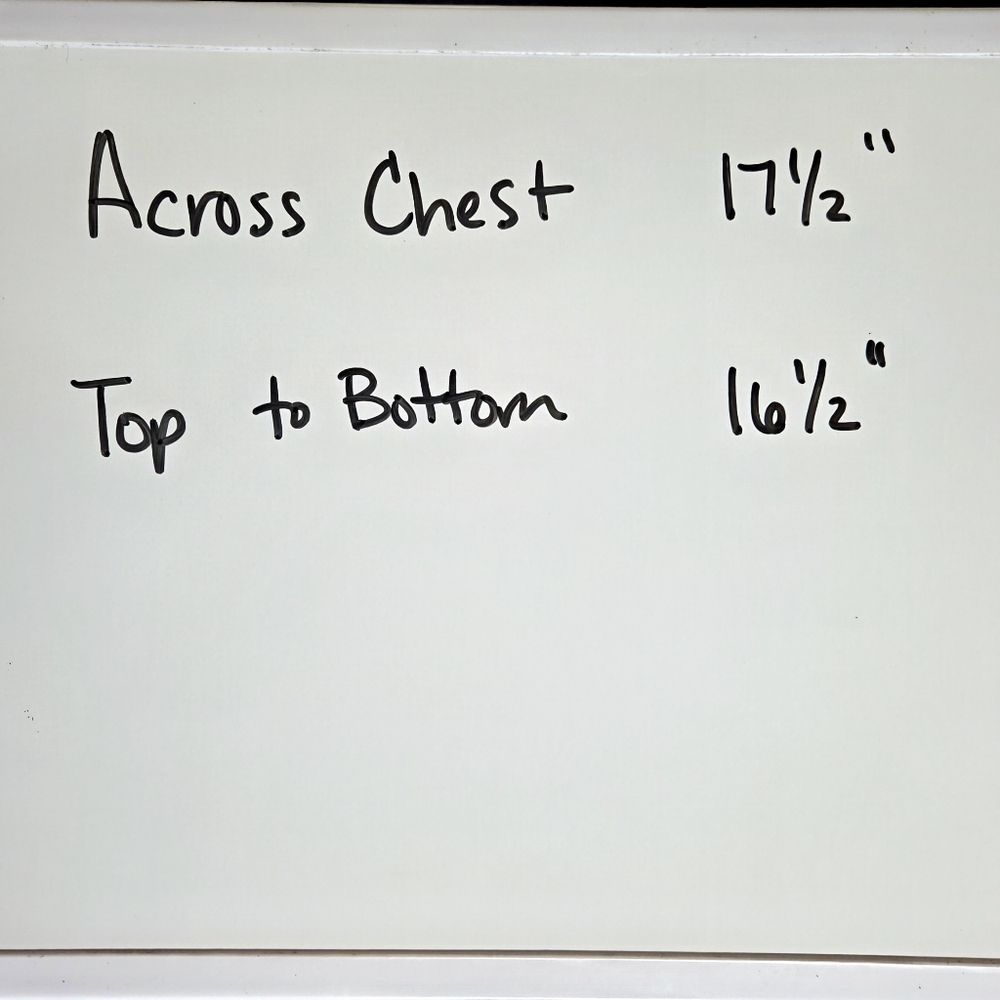 Across Chest 17 1/2 "
Top to Bottom 16 1/2 "